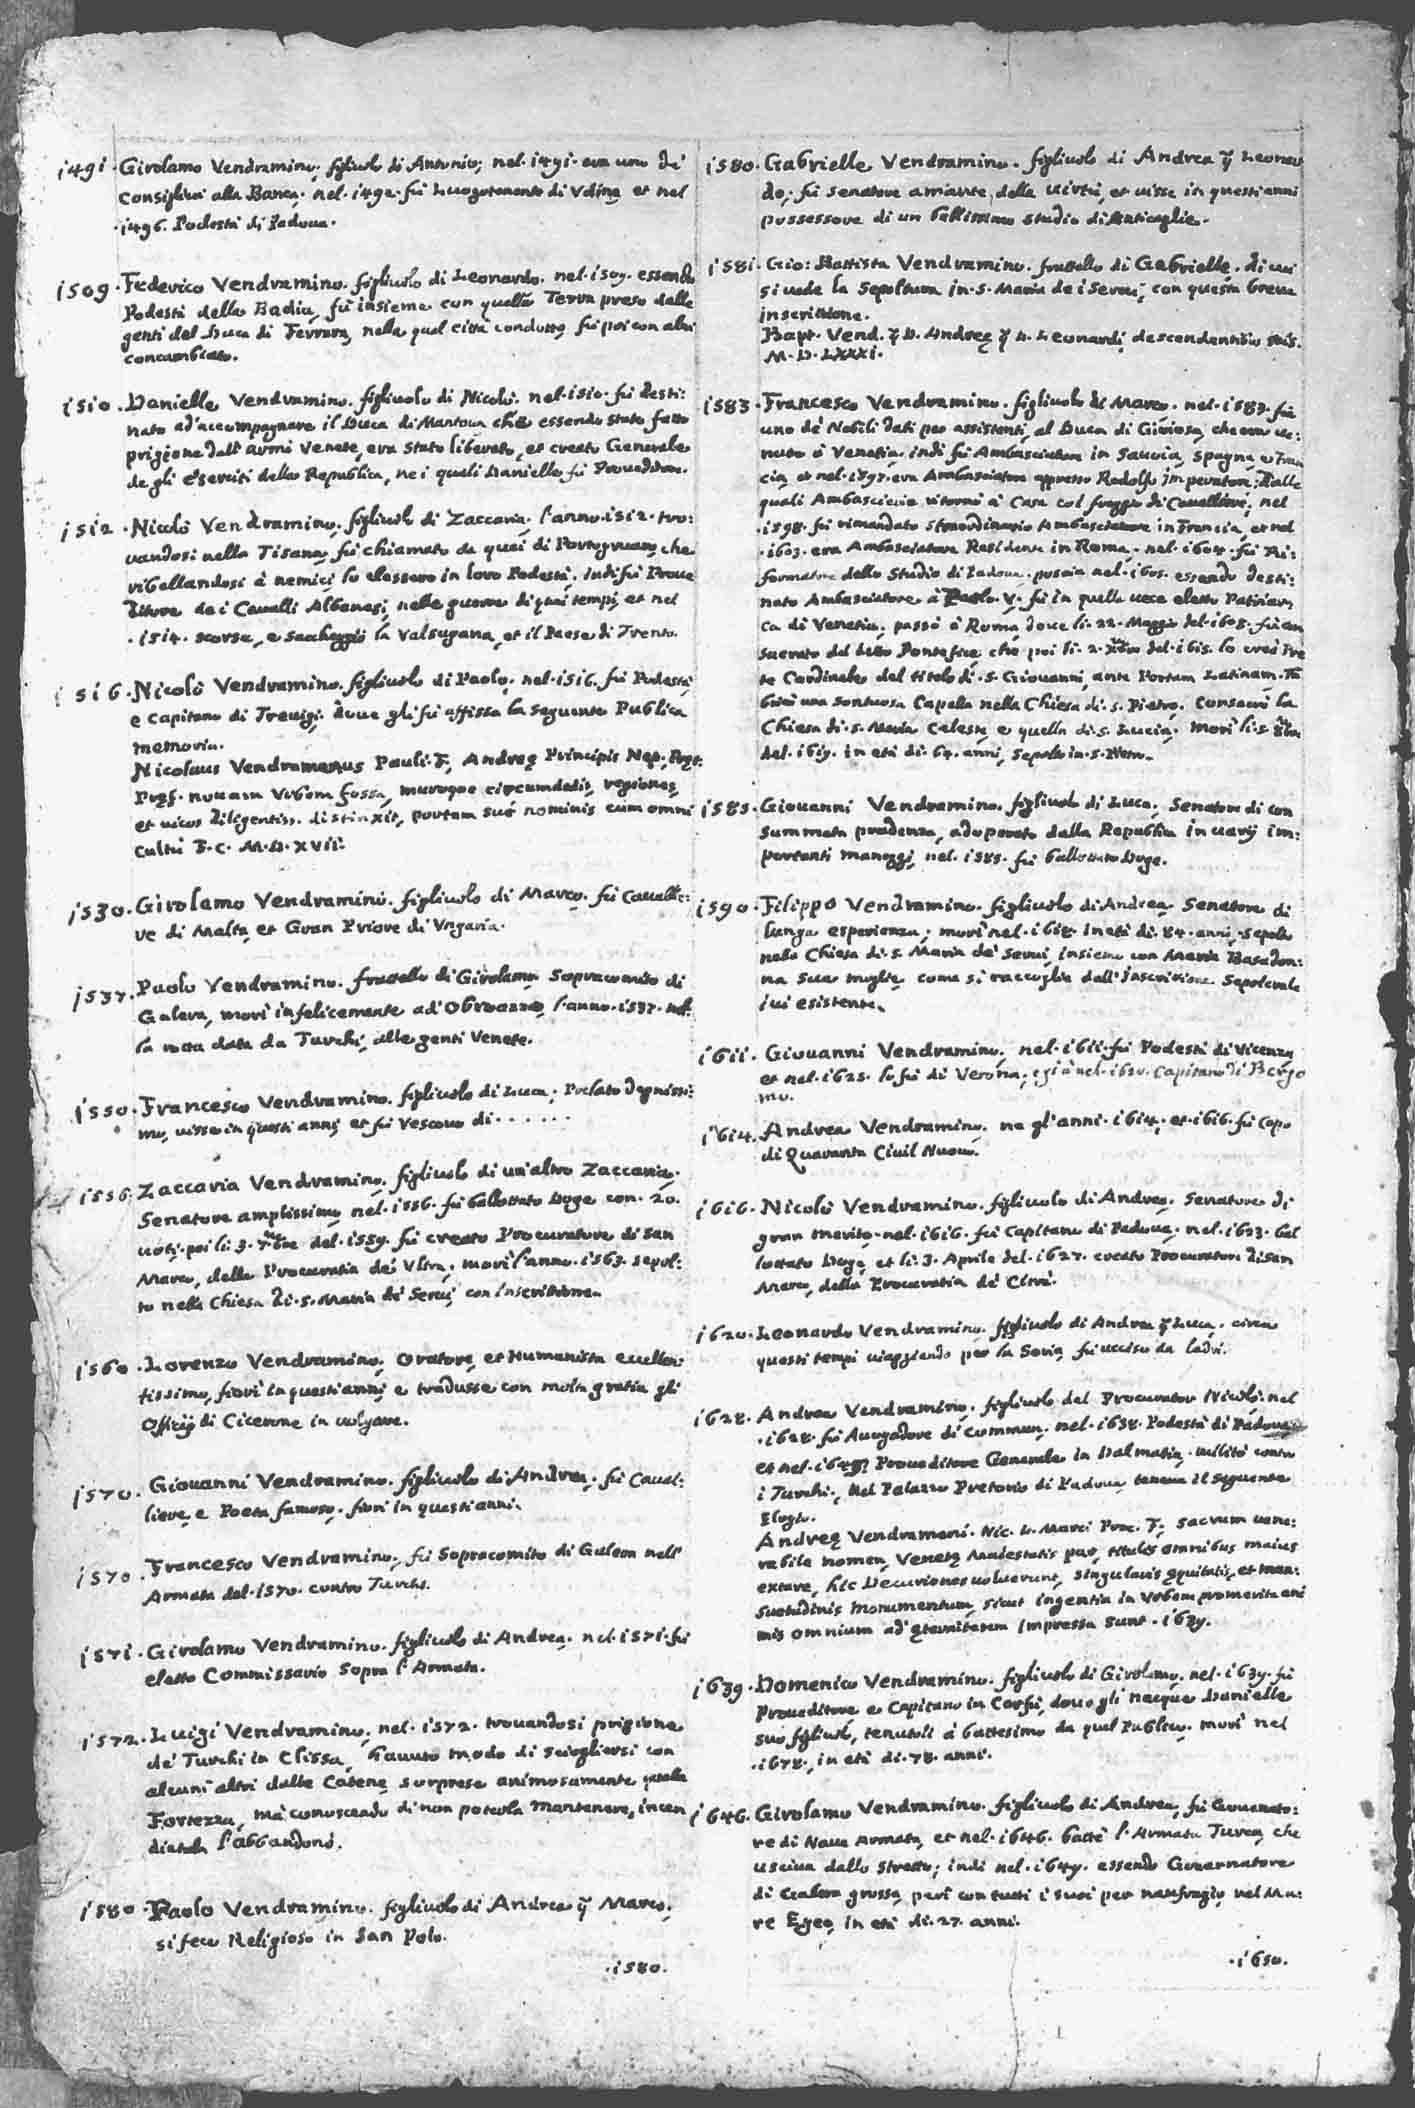 1491. Girolamo Vendramino, figliuolo di Antonio; nel. 1491. era uno de'
Consiglieri alla Banca, nel. 1492. fù Luogotenente di Udine, et nel
.1496. Podestà di Padoua.
1509. Federico Vendramino, figliuolo di Leonardo, nel. 1509. essendo
Podestà della Badia, fù insieme con quella Terra preso dalle
genti del Duca di Ferrara, nella qual città condotto, fù poi con altri
concambiato.
1510. Danielle Vendramino. figliuolo di Nicolò. nel. 1510. fù desti:
nato ad'accompagnare il Duca di Mantoua che essendo stato fatto
prigione dall'armi Venete, era stato liberato, et creato Generale
de gli eserciti della Republica, ne i quali Danielle fù Proueditore.
1512. Nicolò Vendramino, figliuolo di Zaccaria, l'anno. 1512. tro:
uandosi nella Tisana, fù chiamato da quei di Portogruaro, che
ribellandosi à nemici lo elessero in loro Podestà. Indi fù Proue
ditore de i Caualli Albanesi, nelle guerre di quei tempi, et nel
.1514. scorse, e saccheggiò la Valsugana, et il Paese di Trento.
1516. Nicolò Vendramino. figliuolo di Paolo, nel. 1516. fù Podestà,
e Capitano di Treuigi, doue gli fù affissa la seguente Publica
memoria.
Nicolaus Vendramenus Pauli. F. Andreę Principis Nep. Pręt.
Pręf. nouam Vrbem fossa, muroque circumdatis, regiones,
et uicos diligentiss. distinxit, portam sui nominis cum omni
cultu F. C. M. D. XVII.
1530. Girolamo Vendramino. figliuolo di Marco, fù Caualie:
re di Malta, et Gran Priore di Vngaria.
1537. Paolo Vendramino. fratello di Girolamo Sopracomito di
Galera, morì infelicemente ad'Obroazzo, l'anno. 1537. nel
la rotta data da Turchi, alle genti Venete.
1550. Francesco Vendramino. figliuolo di Luca; Prelato degnissi:
mo, uisse in questi anni, et fù Vescouo di . . . . . .
1556. Zaccaria Vendramino, figliuolo di un'altro Zaccaria.
Senatore amplissimo, nel. 1556. fù ballottato Doge con. 20.
uoti. poi li. 3. 7mbre del. 1559. fù creato Procuratore di San
Marco, della Procuratia de' Vltra; morì l'anno. 1563. sepol:
to nella Chiesa di. S. Maria de' Serui, con Inscrittione.
1560. Lorenzo Vendramino, Oratore, et Humanista eccellen:
tissimo, fiorì in questi anni, e tradusse con molta gratia gli
Offizij di Cicerone in uolgare.
1570. Giouanni Vendramino. figliuolo di Andrea, fù Caual:
liere, e Poeta famoso. fiorì in questi anni.
1570. Francesco Vendramino, fù Sopracomito di Galera nell'
Armata del. 1570. contro Turchi.
1571. Girolamo Vendramino. figliuolo di Andrea. nel. 1571. fù
eletto Commissario Sopra l'Armata.
1572. Luigi Vendramino, nel. 1572. trouandosi prigione
de' Turchi in Clissa, hauuto modo di sciogliersi con
alcuni altri dalle Catene, sorprese animosamente quella
Fortezza, mà conoscendo di non poterla mantenere, incen
diatola l'abbandonò.
1580. Paolo Vendramino. figliuolo di Andrea q. Marco,
si fece Religioso in San Polo.
.1580.
1580. Gabrielle Vendramino. figliuolo di Andrea q. Leonar
do. fù senatore amante, della uirtù, et uisse in questi anni
possessore di un bellissimo studio di Anticaglie.
1581. Gio: Battista Vendramino. fratello di Gabrielle. di cui
si uede la Sepoltura in. S. Maria de i Serui, con questa breue
inscrittione.
Bapt. Vend. q. D. Andreę q. D. Leonardi, descendentibus suis.
M. D. LXXXI.
1583. Francesco Vendramino. figliuolo di Marco. nel. 1583. fù
uno de' Nobili dati per assistenti, al Duca di Gioiosa, che era ue:
nuto à Venetia. indi fù Ambasciatore in Sauoia, Spagna, e Fran
cia, et nel. 1597. era Ambasciatore appresso Rodolfo Imperatore; Dalle
quali Ambascierie ritornò à Casa col freggio di Caualliere; nel
.1598. fù rimandato straordinario Ambasciatore in Francia, et nel
.1603. era Ambasciatore Residente in Roma. nel. 1604. fù Ri:
formatore dello Studio di Padoua. poscia nel. 1605. essendo desti:
nato Ambasciatore à Paolo. V. fù in quella uece eletto Patriar
ca di Venetia, passò à Roma, doue li. 22. Maggio del. 1608. fù con
sacrato dal detto Pontefice che poi li. 2. Xmbre del. 1615. lo creò Pre
te Cardinale del titolo di. S. Giouanni, ante Portam Latinam. Fa
bricò una sontuosa Capella nella Chiesa di. S. Pietro. Consacrò la
Chiesa di. S. Maria Celeste, e quella di. S. Lucia. Morì li. 5. 8bre
del. 1619. in età di. 64. anni, Sepolto in. S. Pietro.
1585. Giouanni Vendramino. figliuolo di Luca, Senatore di con
summata prudenza, adoperato dalla Republica in uarij im:
portanti maneggi, nel. 1585. fù ballottato Doge.
1590. Filippo Vendramino. figliuolo di Andrea, Senatore di
lunga esperienza; morì nel. 1618. in età di. 84. anni, sepolto
nella Chiesa di. S. Maria de' Serui, insieme con Maria Basadon:
na sua moglie, come si raccoglie dall'Inscrittione Sepolcrale
iui esistente.
1611. Giouanni Vendramino, nel. 1611. fù Podestà di Vicenza,
et nel. 1625. lo fù di Verona, e già nel. 1620. Capitano di Berga
mo.
1614. Andrea Vendramino, ne gl'anni. 1614. et. 1616. fù Capo
di Quaranta Ciuil Nuouo.
1616. Nicolò Vendramino, figliuolo di Andrea, Senatore di
gran merito, nel. 1616. fù Capitano di Padoua, nel. 1623. bal
lottato Doge, et li. 3. Aprile del. 1627. creato Procurator di San
Marco, della Procuratia de' Citrà.
1620. Leonardo Vendramino. figliuolo di Andrea q. Luca, circa
questi tempi uiaggiando per la Soria, fù ucciso da ladri.
1628. Andrea Vendramino. figliuolo del Procurator Nicolò. nel
.1628. fù Auogadore di Commun, nel. 1638. Podestà di Padoua
et nel. Proueditore Generale in Dalmatia, militò contro
i Turchi, nel Palazzo Pretorio di Padoua teneua il seguente
Elogio.
Andreę Vendrameni. Nic. D. Marci Proc. F. sacrum uene:
rabile nomen, Venetę Maiestatis par, titulis omnibus maius
extare, hic Decuriones uoluerunt, singularis ęquitatis, et man:
suetudinis monumentum, sicut ingentia in Vrbem promerita ani
mis omnium ad ęternitatem Impressa sunt. 1639.
1639. Domenico Vendramino. figliuolo di Girolamo. nel. 1639. fù
Proueditore e Capitano in Corfù, doue gli nacque Danielle
suo figliuolo, tenutoli à battesimo da quel Publico, morì nel
.1678. in età di. 78. anni.
1646. Girolamo Vendramino. figliuolo di Andrea, fù Gouernato:
re di Naue Armata, et nel. 1646. battè l'Armata Turca, che
usciua dallo Stretto; indi nel. 1649. essendo Gouernatore
di Galera grossa, perì con tutti i suoi per naufragio, nel Ma:
re Egeo, in età di. 27. anni.
.1650.